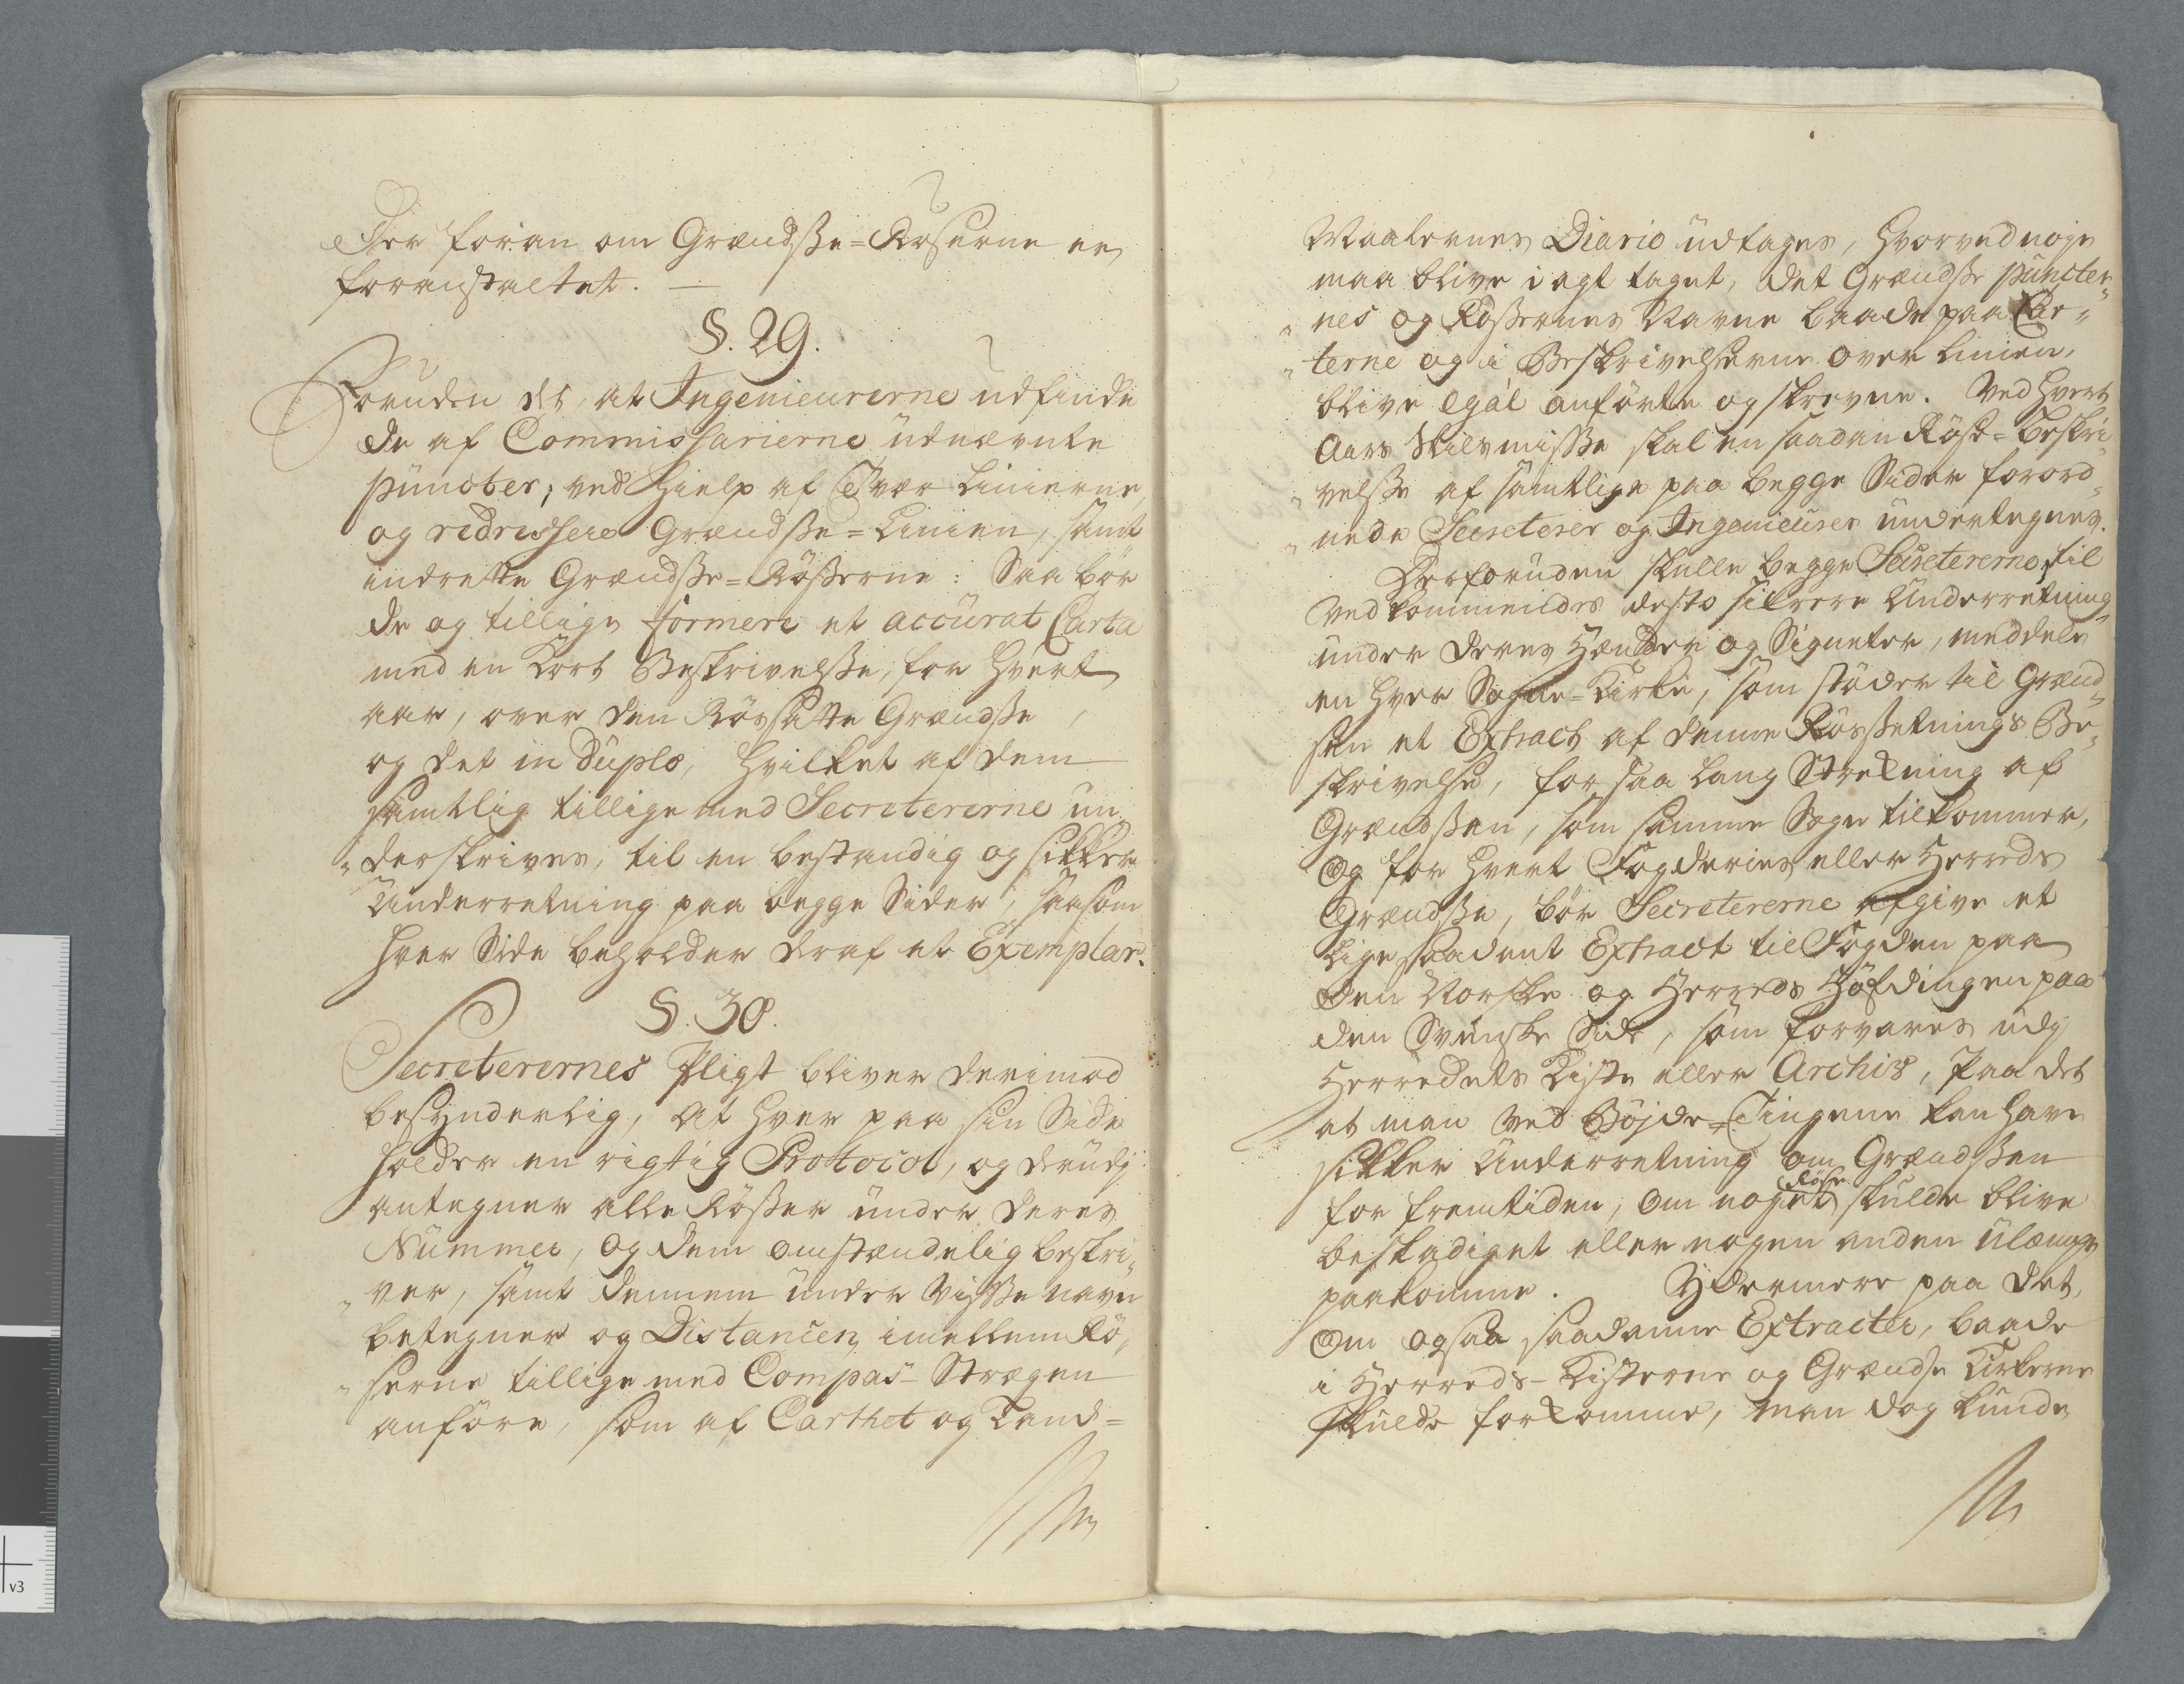 der foran om Grændsse=Røserne er
foranstaltet. —
§. 29.
Foruden det, at Ingenieurerne udfinde
de af Commissarierne udnævnte
puncter; ved Hielp af Tvær Linierne,
og redressere Grændsse=Linien, samt
indrette Grændsse=Røsserne: Saa bør
de og tillige formere et accurat Carta
med en Kort Beskrivelsse, for hvert
aar, over den Røssatte Grændsse,
og det in duplo, hvilket af dem
samtlig tillige med Secretererne un„
„derskrives, til en bestandig og sikker
Underretning paa begge Sider, saasom
hver Side beholder deraf et Exemplar.
§. 30.
Secreterernes Pligt bliver derimod
besynderlig, at hver paa sin Side
holder en rigtig Protocol, og derudj
antegner alle Røsser under deres
Nummer, og dem omstændelig beskri„
„ver, samt dennem under visse navn
betegner og Distancen imellem Rø„
„serne tillige med Compas-Strægen
anføre, som af Carthet og Land=
Maalernes Diario udtages, hvorved nøje
maa blive i agt taget, det Grændsse puncter„
„nes og Røssernes Navne baade paa Car„
„terne og i Beskrivelserne over Linien,
blive egal anførte og skrevne. Ved hvert
Aars Skilsmisse skal en saadan Røse=beskri„
„velsse af samtlige paa begge Sider forord„
„nede Secreterer og Ingenieurer undertegnes.
Derforuden skulle begge Secretererne, til
Vedkommendes desto sikrere Underretning,
under deres Hænder og Signeter, meddele
en hver Sogne=Kirke, som støder til Grænd„
sen et Extract af denne Røssetnings Be„
skrivelse, for saa lang Strekning af
Grændssen, som samme Sogn tilkommer,
Og for hvert Fogderies eller Herreds
Grændsse, bør Secretererne afgive et
Lige saadant Extract til Fogden paa
den Norske og Herreds Høfdingen paa
den Svenske Side, som forvares udj
Herredets Kiste eller Archiv, Paa det
at man ved Bøjde=Tingene kan have
sikker Underretning om Grændssen
for fremtiden, om noget Røse skulde blive
beskadiget eller nogen anden ulæmpe
paakomme. Ydermere paa det,
Om ogsaa saadanne Extracter, baade
i Herreds-Kisterne og Grændse Kirkerne
skulde forkomme, man dog kunde